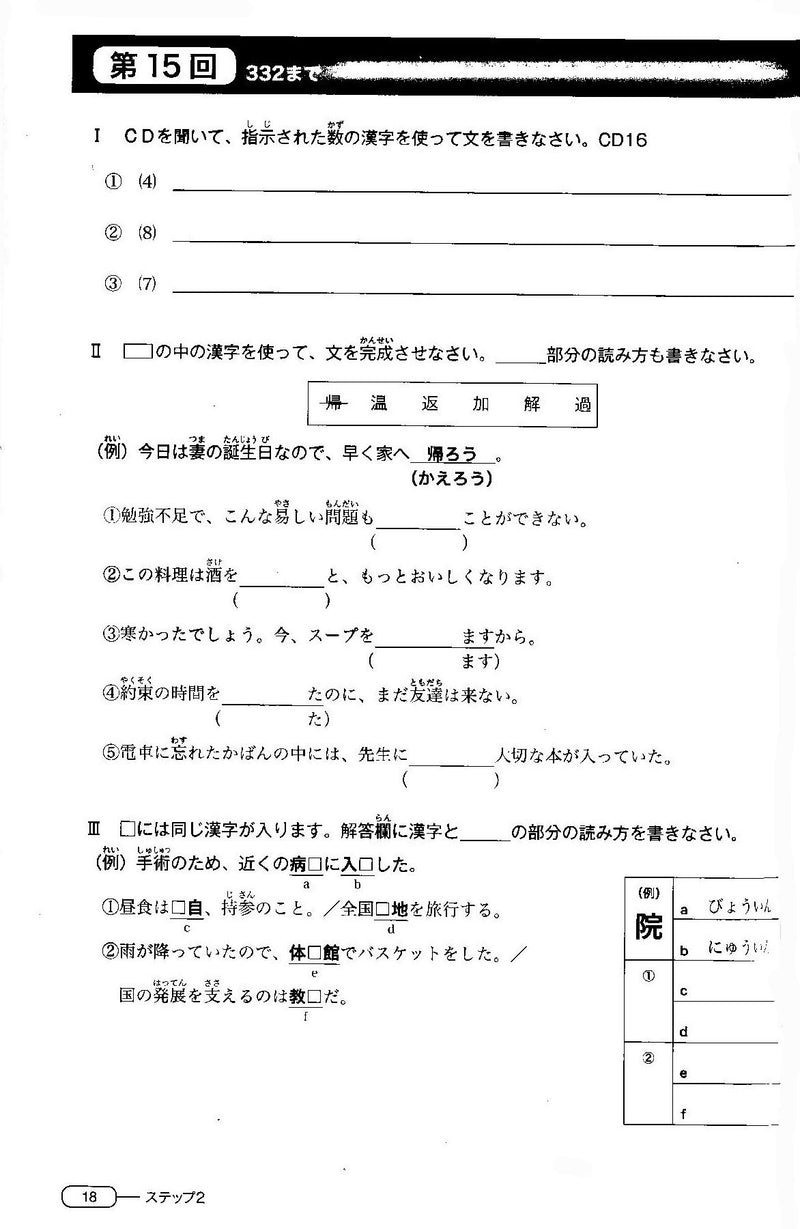 第15回 332まで
Ⅰ CDを聞いて、指示された数の漢字を使って文を書きなさい。CD16
しじ かず
① (4)
② (8)
③ (7)
Ⅱ □の中の漢字を使って、文を完成させなさい。_____部分の読み方も書きなさい。
かんせい
帰 温 返 加 解 過
(例) 今日は妻の誕生日なので、早く家へ 帰ろう 。
れい つま たんじょう び
(かえろう)
①勉強不足で、こんな易しい問題も________ことができない。
やさ もんだい
( )
②この料理は酒を________と、もっとおいしくなります。
さけ
( )
③寒かったでしょう。今、スープを________ますから。
( ます)
④約束の時間を________たのに、まだ友達は来ない。
やくそく ともだち
( た)
⑤電車に忘れたかばんの中には、先生に________大切な本が入っていた。
わす
( )
Ⅲ □には同じ漢字が入ります。解答欄に漢字と_____の部分の読み方を書きなさい。
らん
(例) 手術のため、近くの病□に入□した。
れい しゅじゅつ
a b
①昼食は□自、持参のこと。／全国□地を旅行する。
じ さん
c d
②雨が降っていたので、体□館でバスケットをした。／
e
国の発展を支えるのは教□だ。
はってん ささ
f
(例) 院 a びょういん
b にゅういん
① c
d
② e
f
18 ステップ2